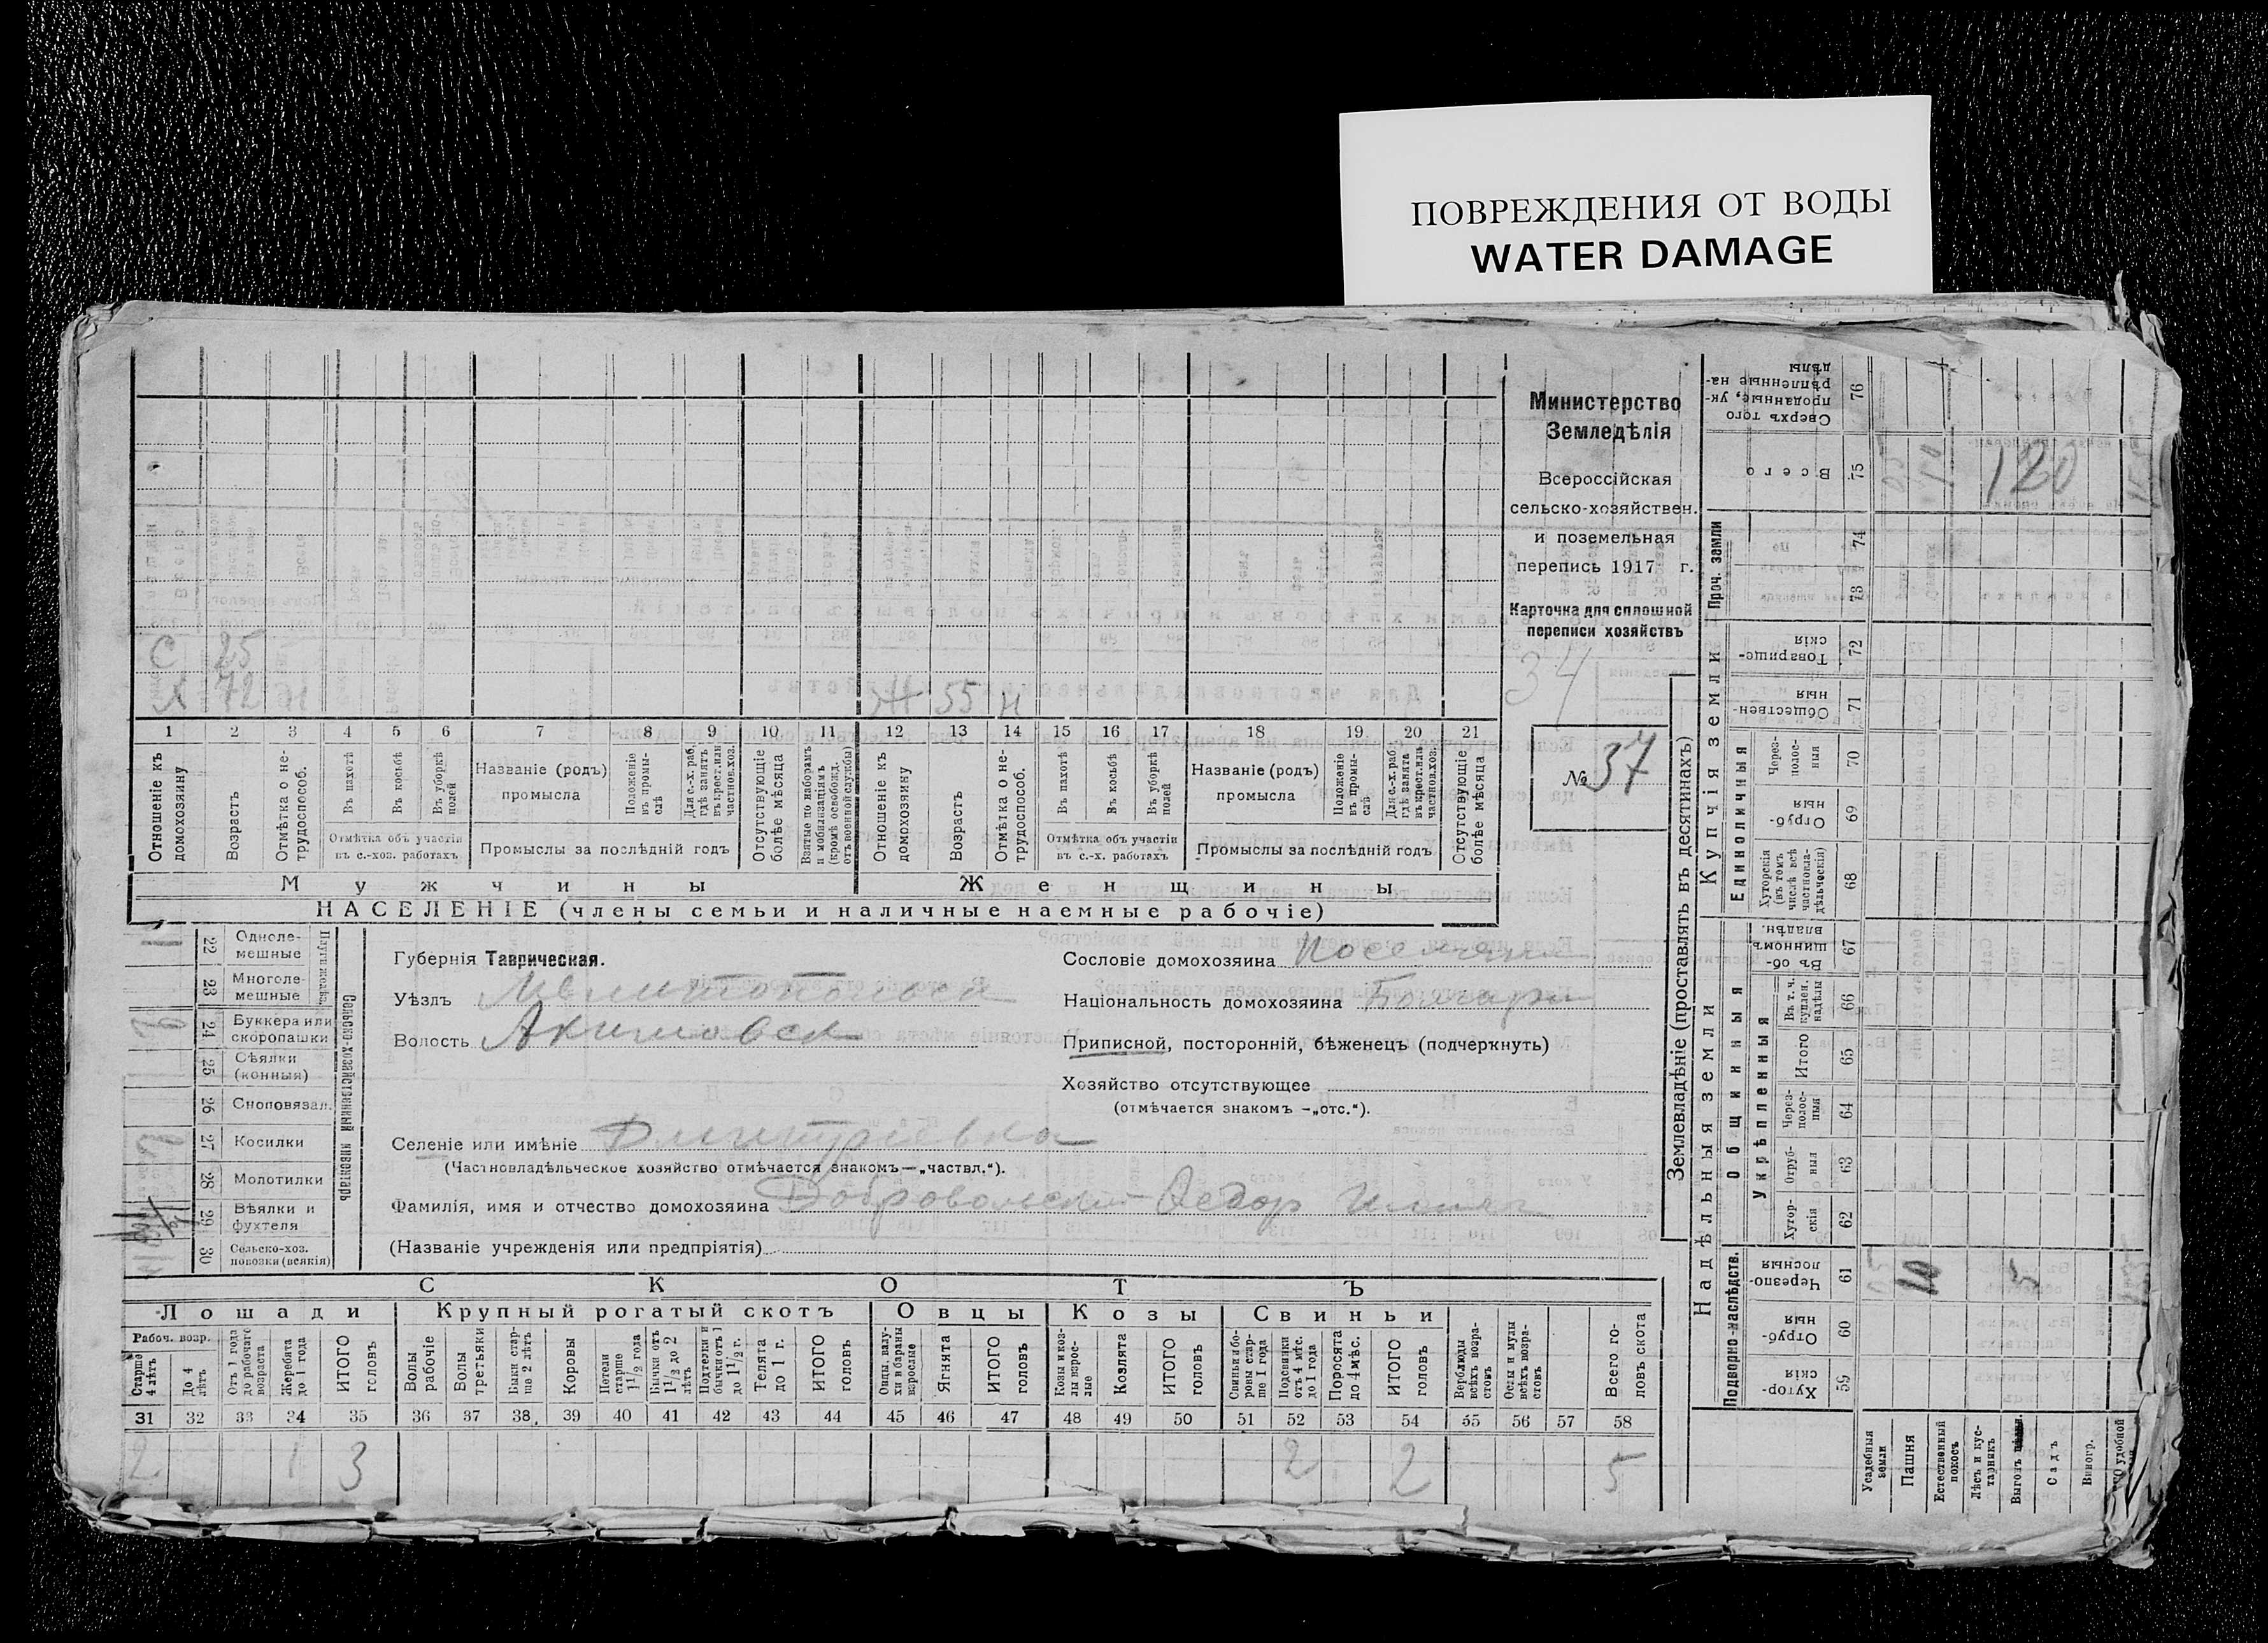 ПОВРЕЖДЕНИЯ ОТ ВОДЫ
WATER DAMAGE
Министерство
Земледѣлія
Всероссійская
сельско-хозяйствен.
и поземельная
перепись 1917 г.
Карточка для сплошной
переписи хозяйствъ
34
№ 37
С 25
Х 72 н
Ж 55 н
1 2 3 4 5 6 7 8 9 10 11 12 13 14 15 16 17 18 19 20 21
Отношеніе къ домохозяину
Возрастъ
Отмѣтка о не-трудоспособ.
Въ пахотѣ
Въ косьбѣ
Въ уборкѣ полей
Отмѣтка объ участіи въ с.-хоз. работахъ
Названіе (родъ) промысла
Положеніе въ промы-слѣ
Для с.-х. раб. гдѣ занятъ въ крест. или частнов. хоз.
Промыслы за послѣдній годъ
Отсутствующіе болѣе мѣсяца
Взятые по наборамъ и мобилизаціямъ (кромѣ освобожд. отъ военной службы)
Отношеніе къ домохозяину
Возрастъ
Отмѣтка о не-трудоспособ.
Въ пахотѣ
Въ косьбѣ
Въ уборкѣ полей
Отмѣтка объ участіи въ с.-х. работахъ
Названіе (родъ) промысла
Положеніе въ промы-слѣ
Для с.-х. раб. гдѣ занята въ крест. или частнов. хоз.
Промыслы за послѣдній годъ
Отсутствующіе болѣе мѣсяца
Мужчины
Женщины
НАСЕЛЕНІЕ (члены семьи и наличные наемные рабочіе)
Сельско-хозяйственный инвентарь
22 Одноле-мешные
23 Многоле-мешные
24 Буккера или скоропашки
25 Сѣялки (конныя)
26 Сноповязал.
27 Косилки
28 Молотилки
29 Вѣялки и фухтеля
30 Сельско-хоз. повозки (всякія)
Губернія Таврическая.
Уѣздъ Мелитопольск
Волость Акимовск
Сословіе домохозяина Поселянин
Національность домохозяина Болгарин
Приписной, посторонній, бѣженецъ (подчеркнуть)
Хозяйство отсутствующее
(отмѣчается знакомъ —„отс.“).
Селеніе или имѣніе Дмитровка
(Частновладѣльческое хозяйство отмѣчается знакомъ—„частвл.“).
Фамилія, имя и отчество домохозяина Добровольский Федор
(Названіе учрежденія или предпріятія)
СКОТЪ
Лошади
Крупный рогатый скотъ
Овцы
Козы
Свиньи
Рабоч. возр.
Старше 4 лѣтъ
До 4 лѣтъ
Отъ 1 года до рабочаго возраста
Жеребята до 1 года
ИТОГО головъ
Волы рабочіе
Волы третьяки
Быки стар-ше 2 лѣтъ
Коровы
Нетели старше 1½ года
Бычки отъ 1½ до 2 лѣтъ
Подтелки и бычки отъ 1 до 1½ г.
Телята до 1 г.
ИТОГО головъ
Овцы, валу-хи и бараны взрослые
Ягнята
ИТОГО головъ
Козы и коз-лы взрос-лые
Козлята
ИТОГО головъ
Свиньи и бо-ровы стар-ше 1 года
Подсвинки отъ 4 мѣс. до 1 года
Поросята до 4 мѣс.
ИТОГО головъ
Верблюды всѣхъ возра-стовъ
Ослы и мулы всѣхъ возра-стовъ
Всего го-ловъ скота
31 32 33 34 35 36 37 38 39 40 41 42 43 44 45 46 47 48 49 50 51 52 53 54 55 56 57 58
2 1 3 2 2 5
Землевладѣніе (проставлять въ десятинахъ)
Надѣльныя земли
Купчія земли
Проч. земли
Подворно-наслѣдств.
Общинныя
Укрѣпленныя
Единоличныя
Сверхъ того проданные, ук-рѣпленные на-дѣлы
76
Всего
75
74
73
Товарище-скія
72
Обществен-ныя
71
Через-полос-ныя
70
Отруб-ныя
69
Хуторскія (въ томъ числѣ всѣ частновла-дѣльческія)
68
Въ об-щинномъ владѣн.
67
Въ т. ч. куплен. надѣлы
66
Итого
65
Через-полос-ныя
64
Отруб-ныя
63
Хутор-скія
62
Черезпо-лосныя
61
Отруб-ныя
60
Хутор-скія
59
Усадебныя земли
Пашня
Естественный покосъ
Лѣсъ и кус-тарникъ
Выгонъ
Садъ
Виногр.
удобной
10
5
120